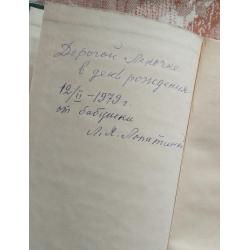 Дорогой Леночке
в день рождения
12/II-1979 г.
от бабушки
Л. Я.